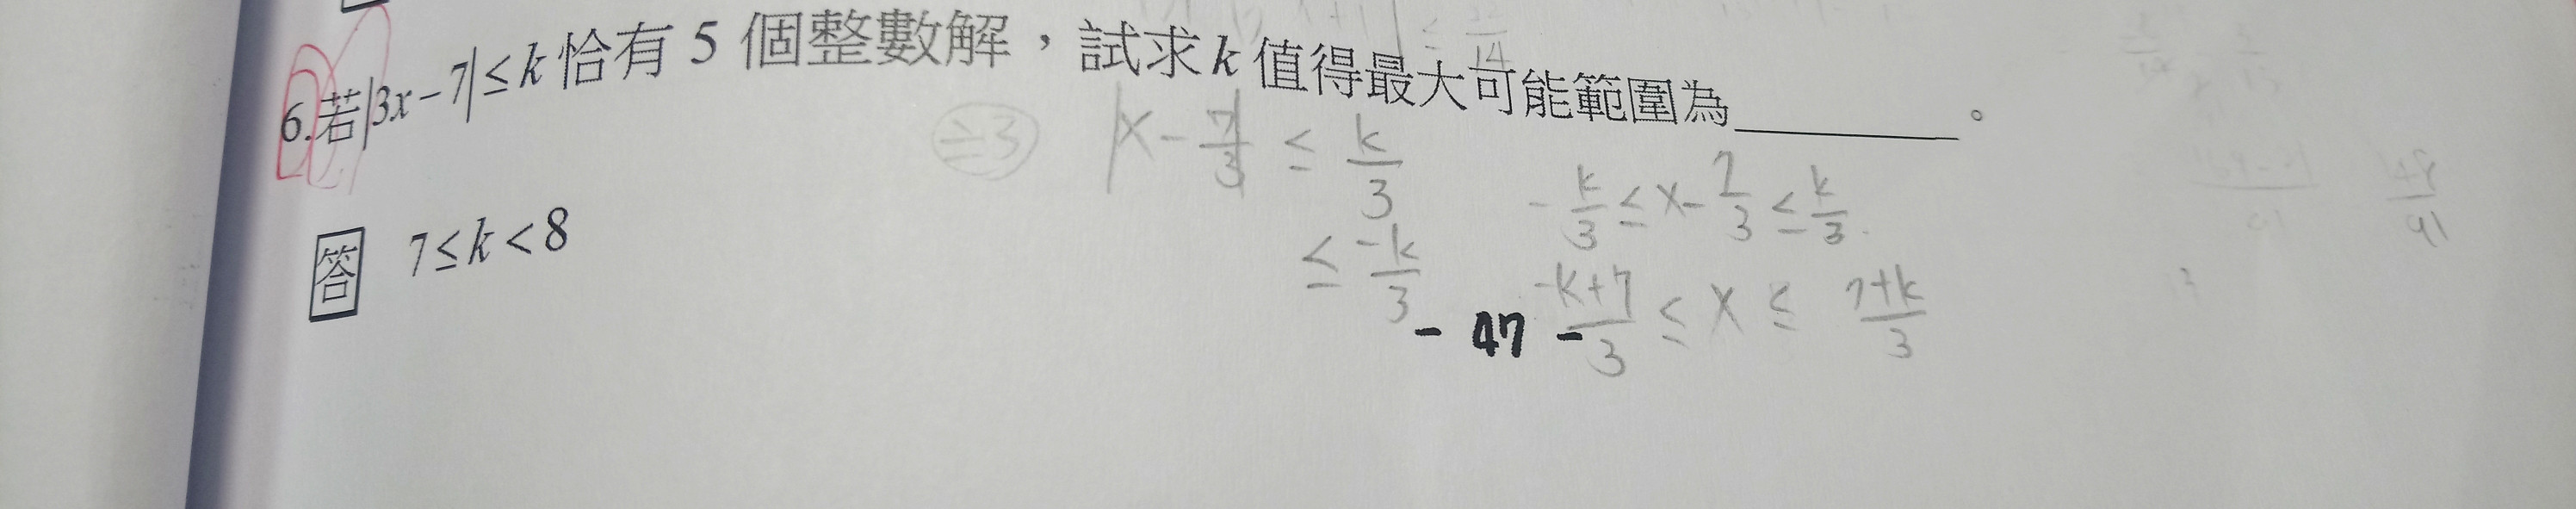 6.若|3x-7|≤k恰有5個整數解，試求k值得最大可能範圍為________。
≥3
|x-7/3|≤k/3
≤-k/3
-k/3≤x-7/3≤k/3
答 7≤k<8
(-k+7)/3≤x≤(7+k)/3
- 47 -